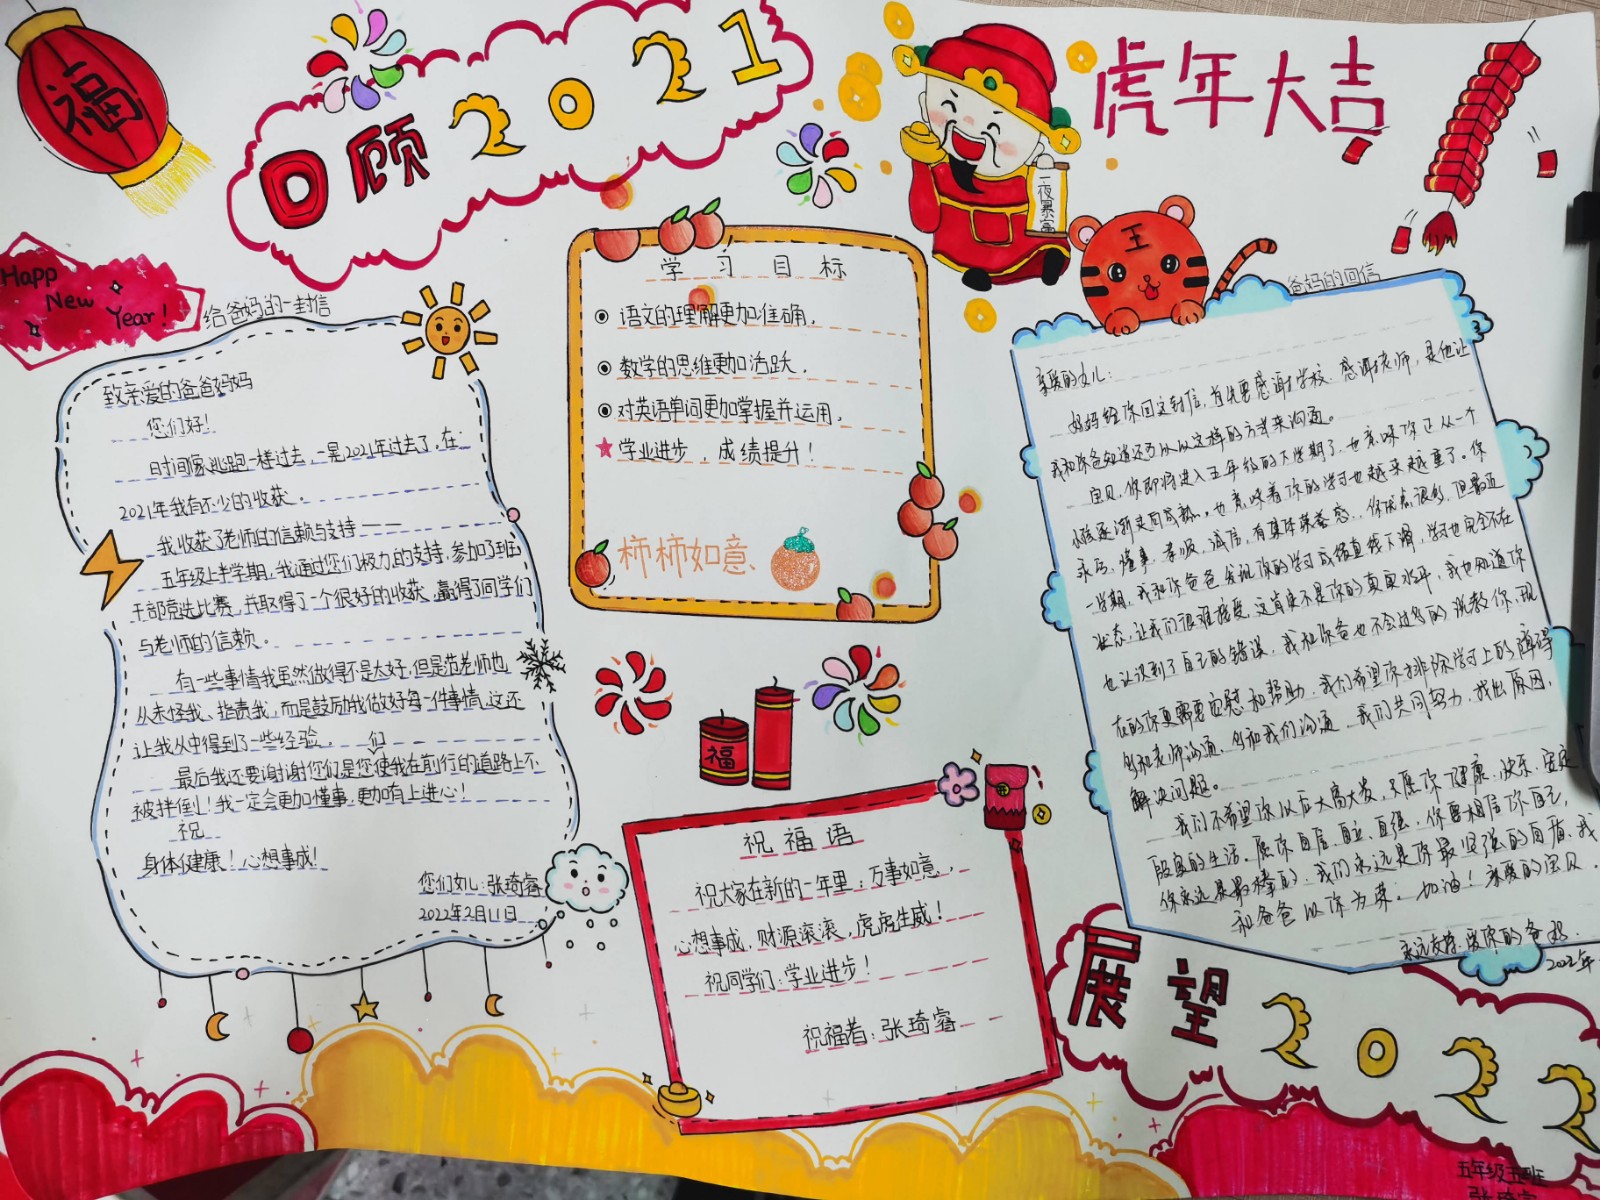 福
回顾2021
虎年大吉
一夜暴富
王
Happ
New
Year!
给爸妈的一封信
致亲爱的爸爸妈妈
您们好!
时间像逃跑一样过去,一晃2021年过去了,在
2021年我有不少的收获。
我收获了老师的信赖与支持——
五年级上半学期,我通过您们极力的支持,参加了班
干部竞选比赛,并取得了一个很好的收获,赢得了同学们
与老师的信赖。
有一些事情我虽然做得不是太好,但是范老师也
从未怪我、指责我,而是鼓励我做好每一件事情,这还
让我从中得到了一些经验。
最后我还要谢谢您们是您们使我在前行的道路上不
被拌倒!我一定会更加懂事,更加有上进心!
祝
身体健康!心想事成!
您们女儿:张琦睿
2022年2月11日
学习目标
语文的理解更加准确。
数学的思维更加活跃。
对英语单词更加掌握并运用。
学业进步,成绩提升!
柿柿如意、
福
祝福语
祝大家在新的一年里:万事如意,
心想事成,财源滚滚,虎虎生威!
祝同学们:学业进步!
祝福者:张琦睿
爸妈的回信
亲爱的女儿:
妈妈给你回这封信,首先要感谢学校、感谢老师,是他让
我和你爸知道还可以以这样的方式来沟通。
宝贝,你即将进入五年级的下学期了,也意味你已从一个
小孩逐渐走向成熟。也意味着你的学习也越来越重了。你
活、懂事、孝顺、诚信,有集体荣誉感,你优点很多,但最近
一学期,我和你爸爸发现你的学习成绩直线下滑,学习也完全不在
状态,让我们很难接受,这肯定不是你的真实水平,我也知道你
也认识到了自己的错误,我和你爸也不会过多的说教你,现
在的你更需要安慰和帮助,我们希望你排除学习上的障碍
多和老师沟通,多和我们沟通,我们共同努力,找出原因,
解决问题。
我们不希望你以后大富大贵,只愿你健康、快乐、
的生活,愿你自信、自立、自强,你要相信你自己,
你永远是最棒的,我们永远是你最坚强的后盾,我
和爸爸以你为荣:加油!亲爱的宝贝。
永远支持、爱你的爸妈.
2022年
展望2022
五年级五班